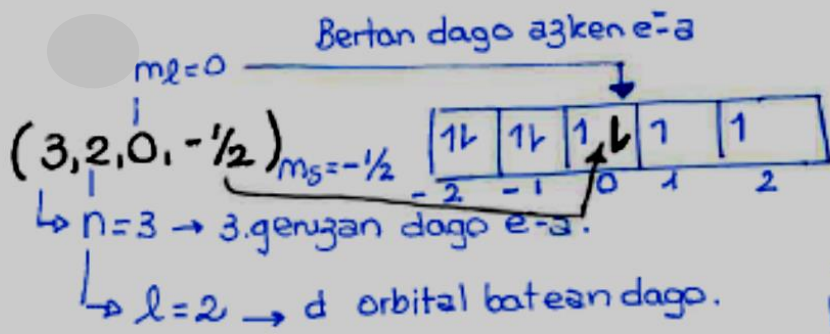 Bertan dago azken e⁻-a
mℓ=0
(3,2,0,-1/2) ms=-1/2
1↿⇂ 1⇂ 1⇂ 1 1
-2 -1 0 1 2
↳ n=3 → 3.geruzan dago e⁻-a.
↳ l=2 → d orbital batean dago.